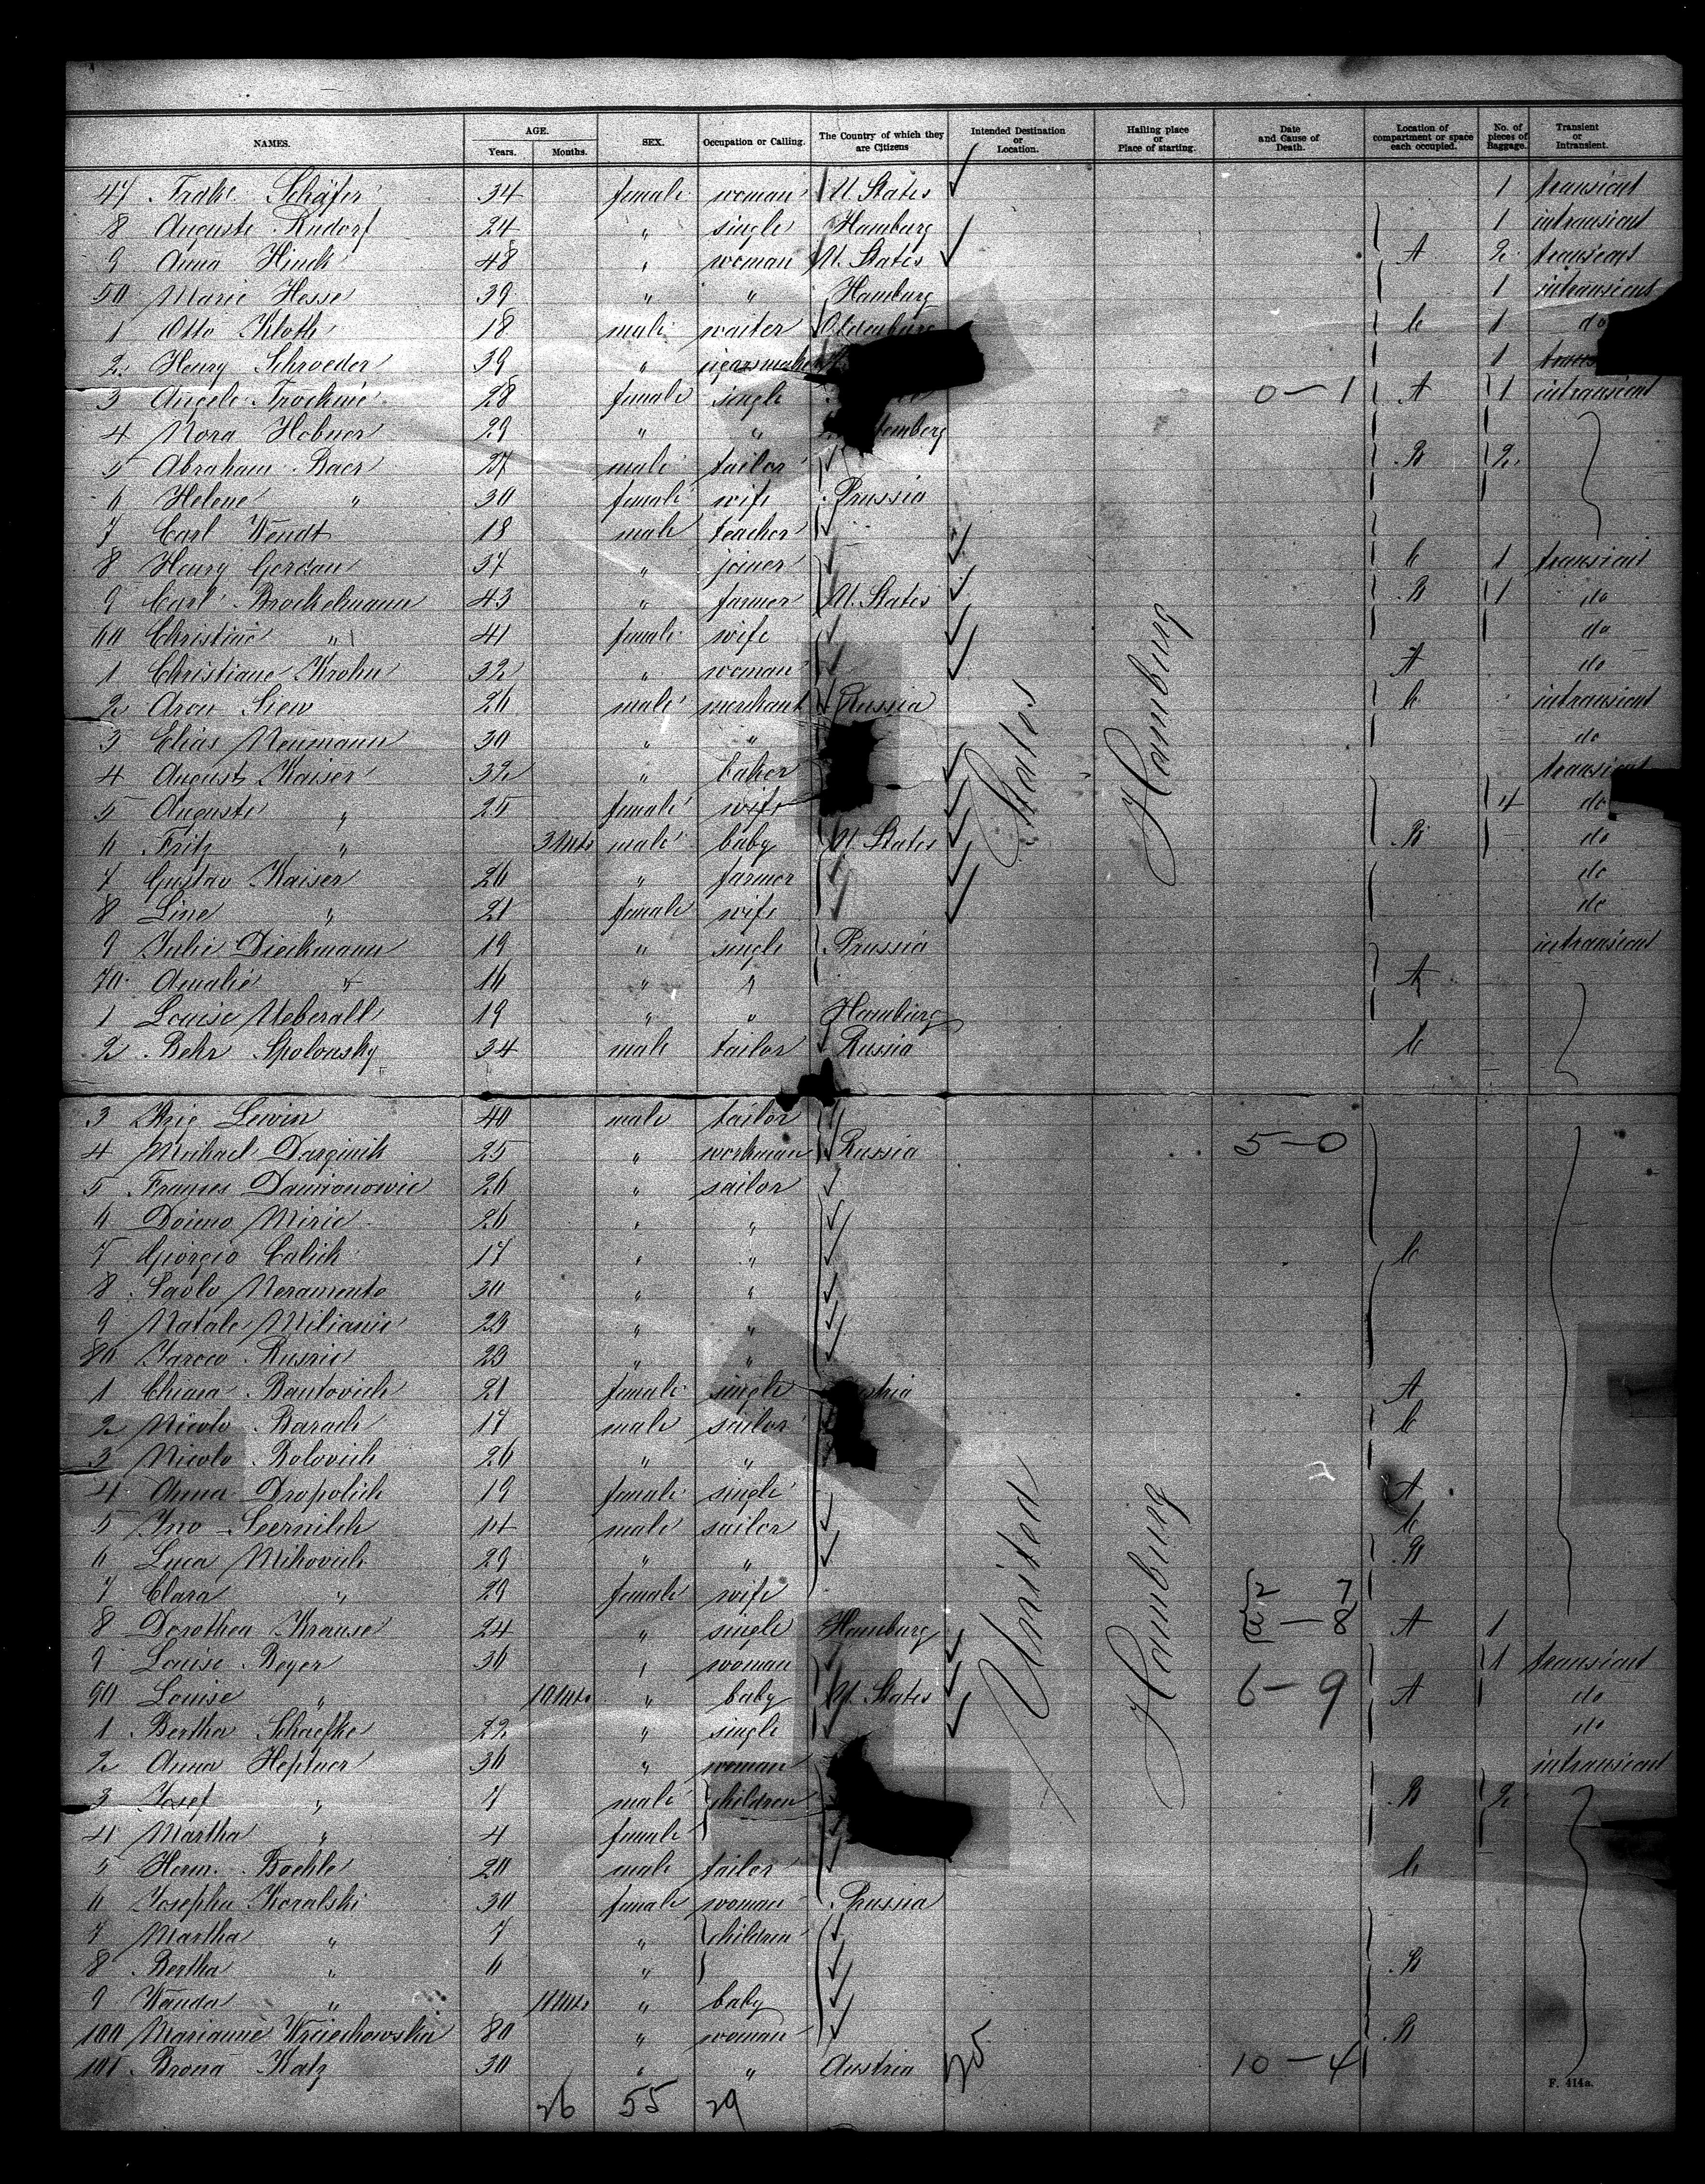 NAMES. AGE. Years. Months. SEX. Occupation or Calling. The Country of which they are Citizens Intended Destination or Location. Hailing place or Place of starting. Date and Cause of Death. Location of compartment or space each occupied. No. of pieces of Baggage. Transient or Intransient.
47 Schäfer 34 female woman U. States 1 transient
8 Auguste Rudorf 24 " single Hamburg 1 intransient
9 Anna Hinck 48 " woman U. States A 2 transient
50 Marie Hesse 39 " " Hamburg 1 intransient
1 Otto Kloth 18 male waiter Oldenburg C 1 do
2 Henry Schroeder 39 " 1
3 Angele 28 female single 0-1 A 1 intransient
4 Nora Hebner 29 " "
5 Abraham Baer 27 male tailor B 2
6 Helene " 30 female wife Prussia
7 Carl Wendt 18 male teacher
8 Henry Gerdau 37 " joiner C 1 transient
9 Carl Brockelmann 43 " farmer U. States B 1 do
60 Christine " 41 female wife do
1 Christiane Krohn 32 " woman A do
2 Aron Siew 26 male merchant Russia C intransient
3 Elias Neumann 30 " " do
4 August Kaiser 32 " baker transient
5 Auguste " 25 female wife 4 do
6 Fritz " 3 Mts male baby U. States B do
7 Gustav Kaiser 26 " farmer do
8 Line " 21 female wife do
9 Julie Dieckmann 19 " single Prussia intransient
70 Amalie " 16 " " A
1 Louise Ueberall 19 " " Hamburg
2 Behr Spolonsky 34 male tailor Russia C
3 Lewin 40 male tailor
4 Michael 25 " workman Russia 5-0
5 Damianowic 26 " sailor
6 Doimo Miric 26 " "
7 Giorgio Calich 17 " " C
8 Paolo Neramento 30 " "
9 Natale Milianic 23 " "
80 Rusric 23 " "
1 Chiara Bautovich 21 female single A
2 Nicolo Barach 17 male sailor C
3 Nicolo Bolovich 26 " "
4 Anna Dropolich 19 female single A
5 14 male sailor C
6 Luca Mihovich 29 " " B
7 Clara " 29 female wife
8 Dorothea Krause 24 " single Hamburg A 1
9 Louise Beyer 36 " woman 1 transient
90 Louise " 10 Mts " baby U. States 6-9 A do
1 Bertha Schaefke 22 " single do
2 Anna Heptner 30 " woman intransient
3 Josef " 7 male children B 2
4 Martha " 4 female
5 Herm. Boehle 20 male tailor C
6 Josepha Koralski 30 female woman Prussia
7 Martha " 7 " children
8 Bertha " 6 " B
9 Wanda " 11 Mts " baby
100 Marianne Wreichowska 80 " woman B
101 Katz 30 " " Austria 10-4
United States
Hamburg
Hamburg
26 55 29
F. 414a.